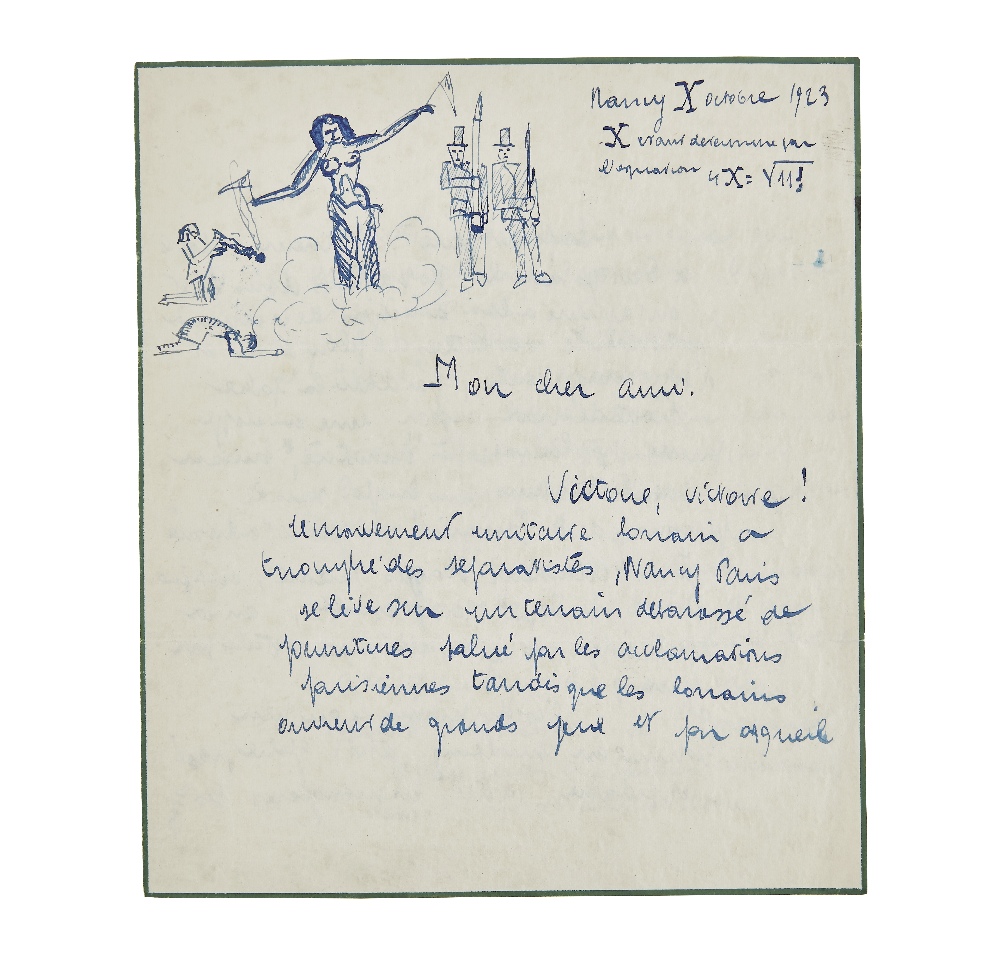 Nancy X octobre 1923
X etant determine par
l'equation 4X= √11!
Mon cher ami.
Victoire, victoire !
le mouvement unitaire lorrain a
triomphé des separatistes, Nancy Paris
se lève sur un terrain débarassé de
peintures salué par les acclamations
parisiennes tandis que les lorrains
ouvrent de grands yeux et par orgueil